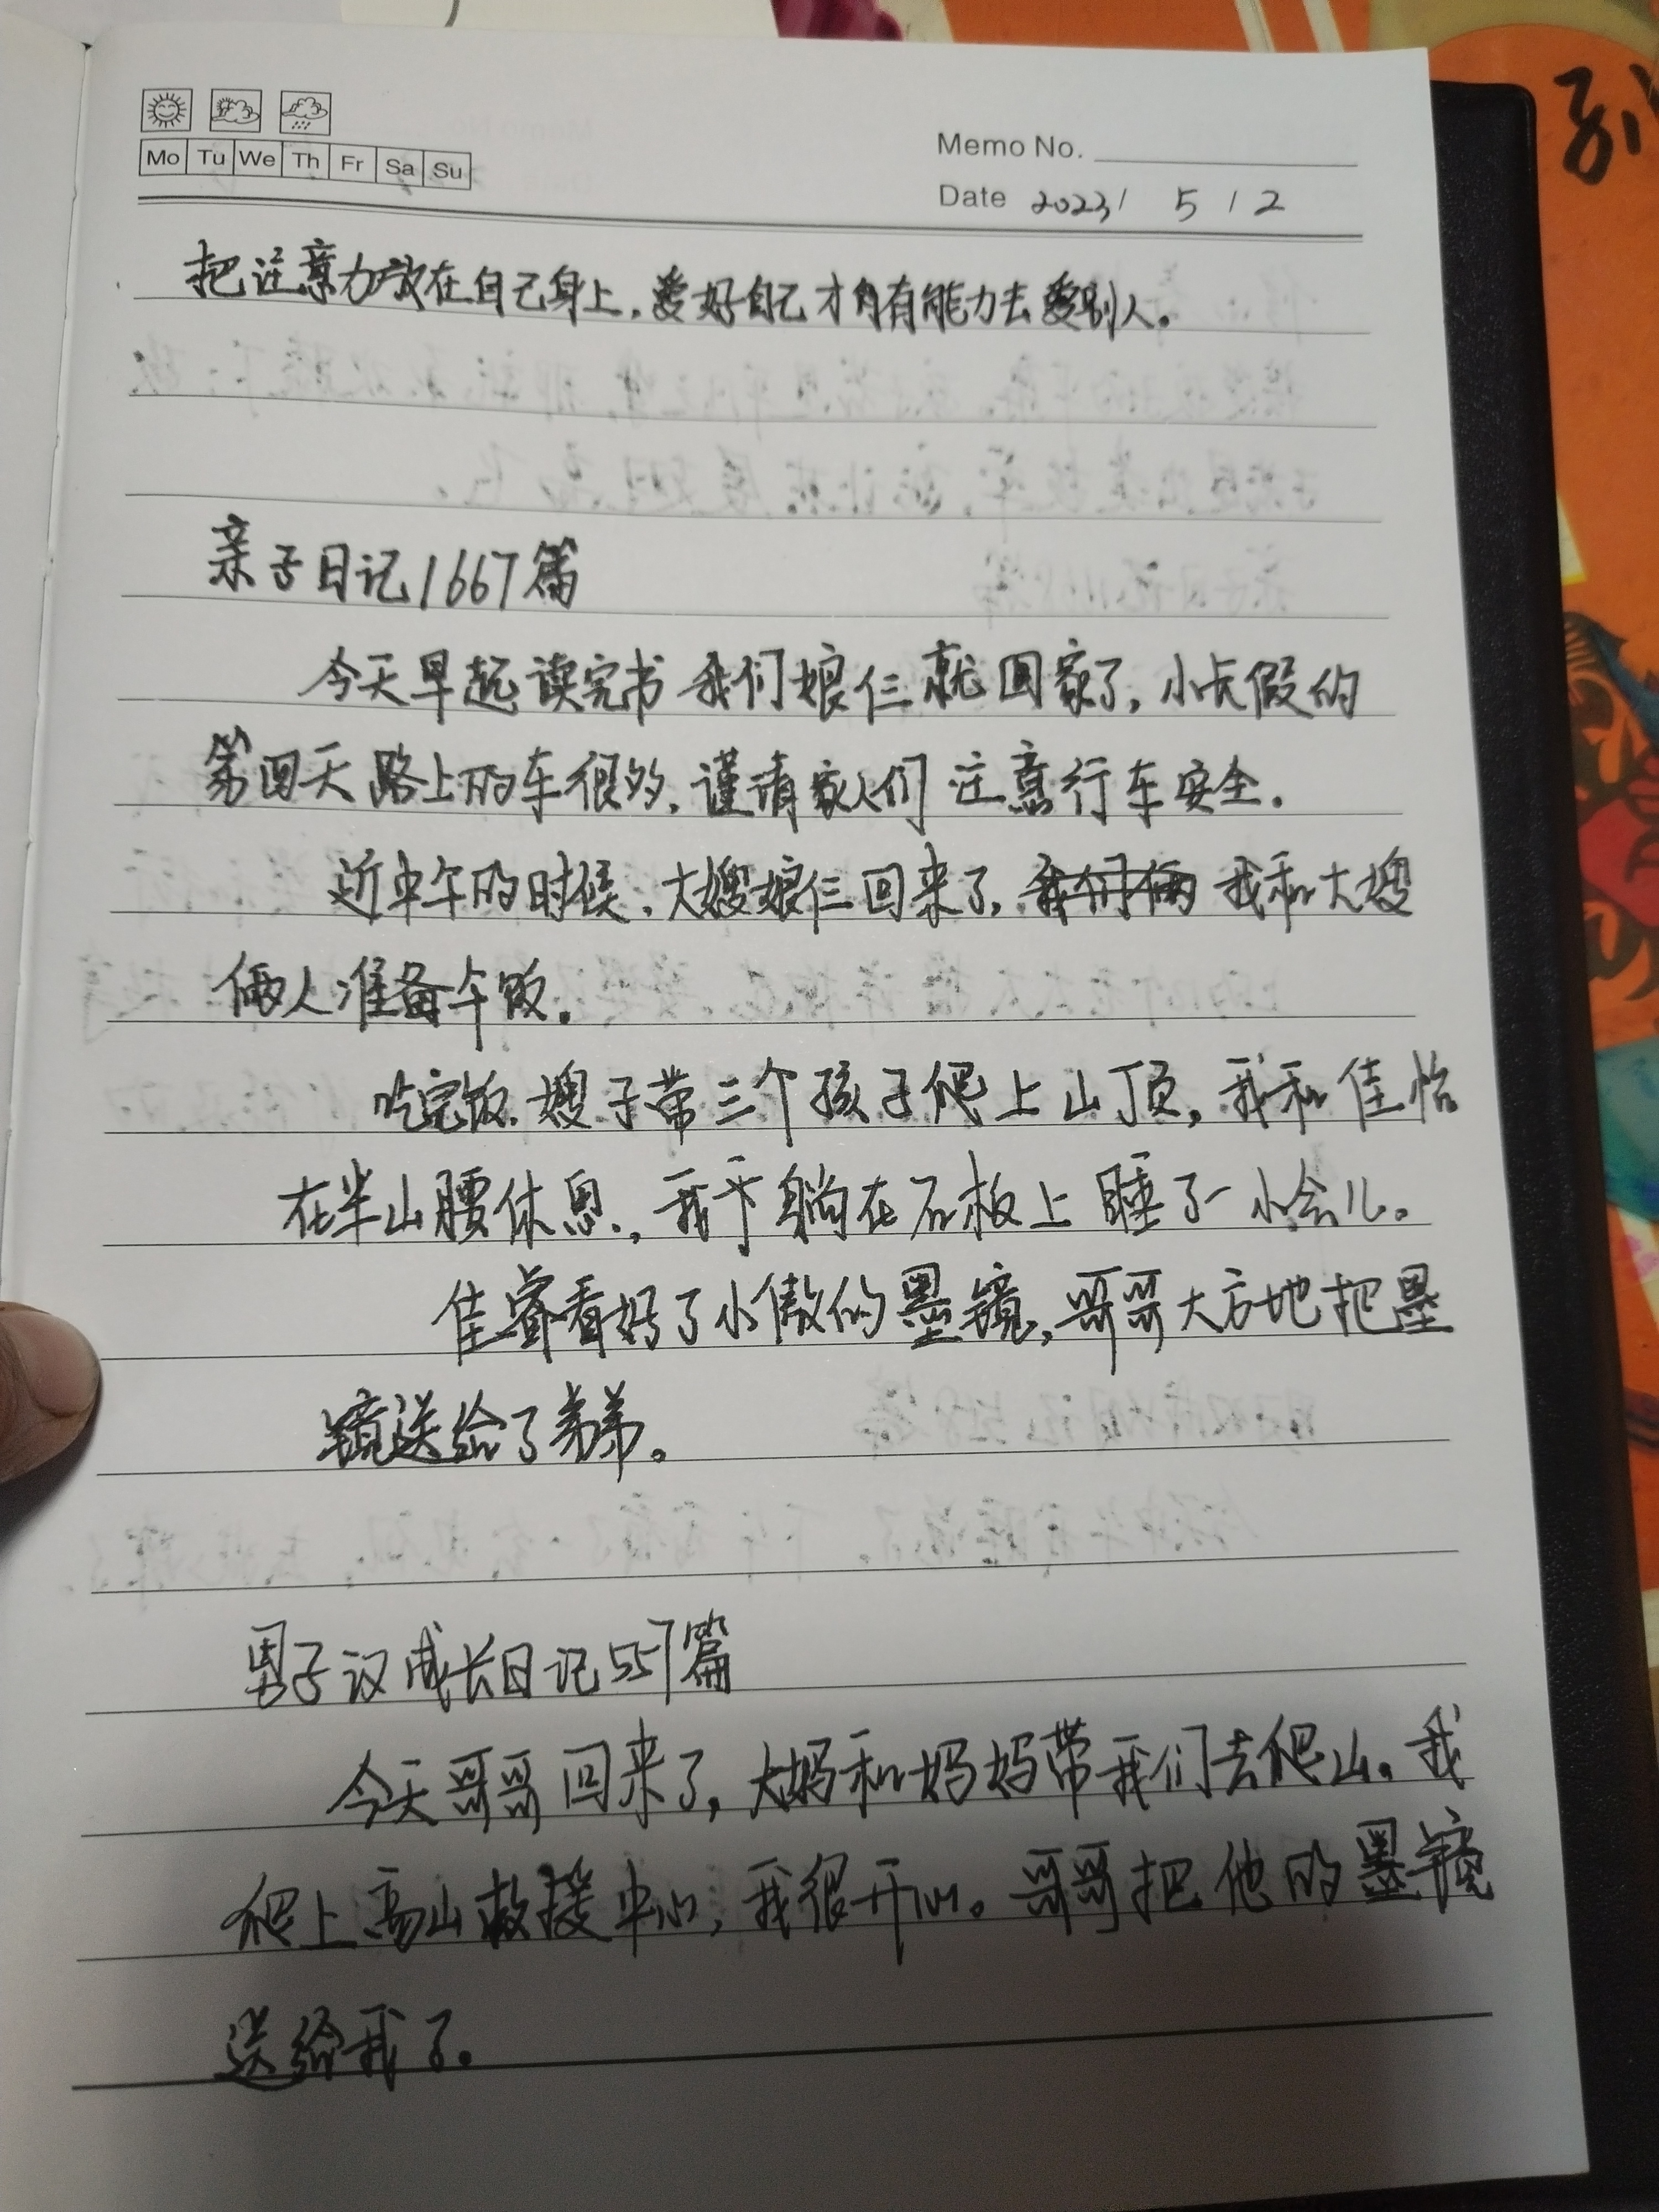 Mo Tu We Th Fr Sa Su
Memo No.
Date 2023/ 5 / 2
把注意力放在自己身上，爱好自己才有能力去爱别人。
亲子日记1667篇
今天早起读完书 我们娘仨就回家了，小长假的
第四天路上的车很多，谨请家人们注意行车安全。
近中午的时候，大嫂娘仨回来了，我们俩 我和大嫂
俩人准备午饭。
吃完饭，嫂子带三个孩子爬上山顶，我和佳怡
在半山腰休息，我 躺在石板上睡了一小会儿。
佳睿看好了小傲的墨镜，哥哥大方地把墨
镜送给了弟弟。
男子汉成长日记557篇
今天哥哥回来了，大妈和妈妈带我们去爬山。我
爬上高山救援中心，我很开心。哥哥把他的墨镜
送给我了。
别